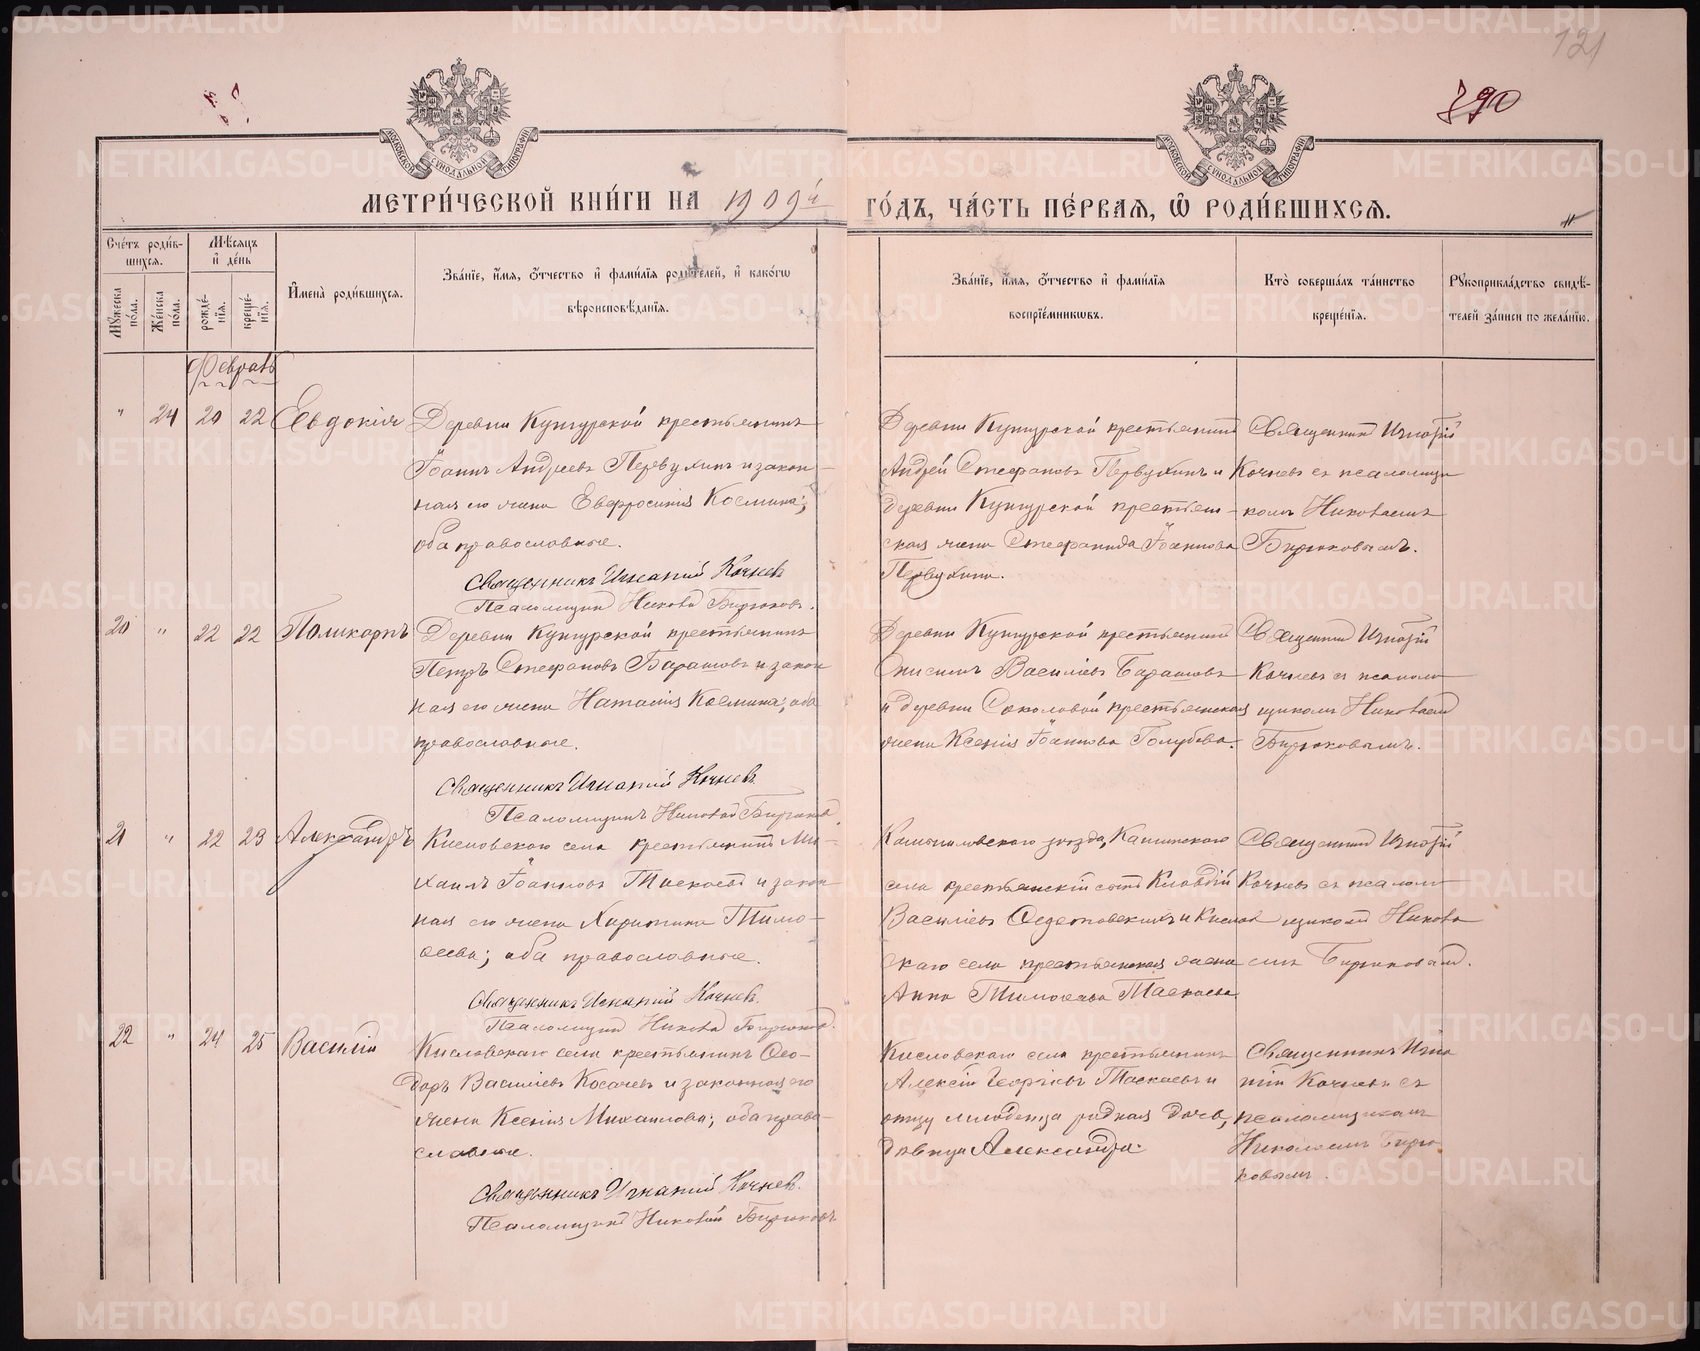 121
790
МОСКОВСКОЙ СѴНОДАЛЬНОЙ ТИПОГРАФІИ
МОСКОВСКОЙ СѴНОДАЛЬНОЙ ТИПОГРАФІИ
МЕТРИ́ЧЕСКОЙ КНИ́ГИ НА 1909й ГО́ДЪ, ЧА́СТЬ ПЕ́РВАЯ, Ѡ҆ РОДИ́ВШИХСЯ.
Сче́тъ роди́в-
шихся.
Мѣ́сяцъ
и҆ де́нь
Мꙋ́жеска по́ла.
Же́нска по́ла.
рожде́-
нїя.
креще́-
нїя.
И҆мена̀ роди́вшихся.
Зва́нїе, и҆́мя, ѻ҆́тчество и҆ фами́лїя роди́телей, и҆ како́гѡ
вѣроисповѣ́данїя.
Зва́нїе, и҆́мя, ѻ҆́тчество и҆ фами́лїя
воспрїе́мникѡвъ.
Кто̀ соверша́лъ та́инство
креще́нїя.
Рꙋкоприкла́дство свидѣ́-
телей за́писи по жела́нїю.
Февраль
" 24 20 22 Евдокія
Деревни Кунгурской крестьянинъ
Іоаннъ Андреевъ Первухинъ и закон-
ная его жена Евфросинія Космина;
оба православные.
Священникъ Игнатій Кочневъ
Псаломщикъ Николай Бирюковъ.
Деревни Кунгурской крестьянинъ
Андрей Стефановъ Первухинъ и
деревни Кунгурской крестьян-
ская жена Стефанида Іоаннова
Первухина.
Священникъ Игнатій
Кочневъ съ псаломщи
комъ Николаемъ
Бирюковымъ.
20 " 22 22 Поликарпъ
Деревни Кунгурской крестьянинъ
Петръ Стефановъ Барашовъ и закон
ная его жена Наталія Космина; оба
православные.
Священникъ Игнатій Кочневъ
Псаломщикъ Николай Бирюковъ
Деревни Кунгурской крестьянинъ
Онисимъ Василіевъ Барашовъ
и деревни Соколовой крестьянская
жена Ксенія Іоаннова Голубева.
Священникъ Игнатій
Кочневъ съ псалом
щикомъ Николаемъ
Бирюковымъ.
21 " 22 23 Александръ
Кисловскаго села крестьянинъ Ми-
хаилъ Іоанновъ Таскаевъ и закон
ная его жена Харитина Тимо-
ѳеева; оба православные.
Священникъ Игнатій Кочневъ.
Псаломщикъ Николай Бирюковъ.
Камышловскаго уѣзда, Кашинскаго
села крестьянскій сынъ Клавдій
Василіевъ и Кислов
скаго села крестьянская жена
Анна Тимоѳеева Таскаева
Священникъ Игнатій
Кочневъ съ псалом
щикомъ Никола
емъ Бирюковымъ.
22 " 24 25 Василій
Кисловскаго села крестьянинъ Ѳео-
доръ Василіевъ Косачевъ и законная его
жена Ксенія Михаилова; оба право-
славные.
Священникъ Игнатій Кочневъ.
Псаломщикъ Николай Бирюковъ
Кисловскаго села крестьянинъ
Алексій Георгіевъ Таскаевъ и
отцу младенца родная дочь,
дѣвица Александра.
Священникъ Игна
тій Кочневъ съ
псаломщикомъ
Николаемъ Бирю
ковымъ.
METRIKI.GASO-URAL.RU